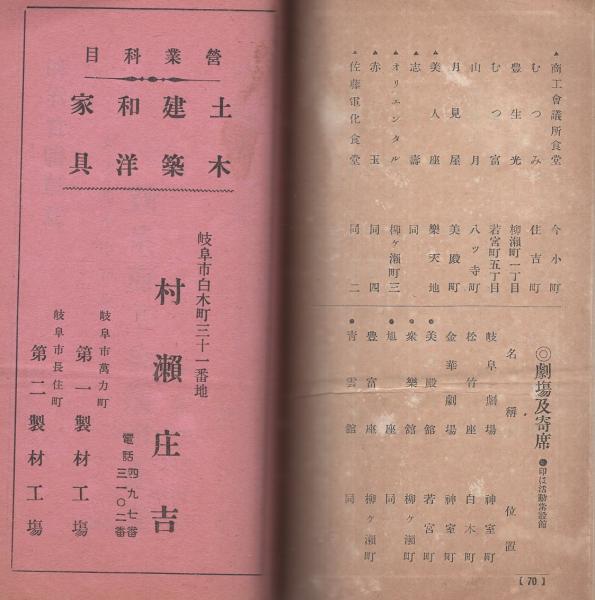 ▲商工會議所食堂 今小町
むつみ 住吉町
豊生光 柳瀬町一丁目
むつ富 若宮町五丁目
山月 八ッ寺町
月見屋 美殿町
▲美人座 樂天地
▲志壽 同
▲オリエンタル 柳ヶ瀬町三
▲赤玉 同四
▲佐藤電化食堂 同二
◎劇場及寄席 ●印は活動常設館
名稱 位置
岐阜劇場 神室町
松竹座 白木町
金華劇場 神室町
●美殿館 若宮町
●衆樂館 柳ヶ瀬町
●旭座 同
豊富座 柳ヶ瀬町
●青雲館 同
【70】
營業科目
土木
建築
和洋
家具
岐阜市白木町三十一番地
村瀬庄吉
電話四九七番
三一〇二番
岐阜市萬力町
第一製材工塲
岐阜市長住町
第二製材工塲